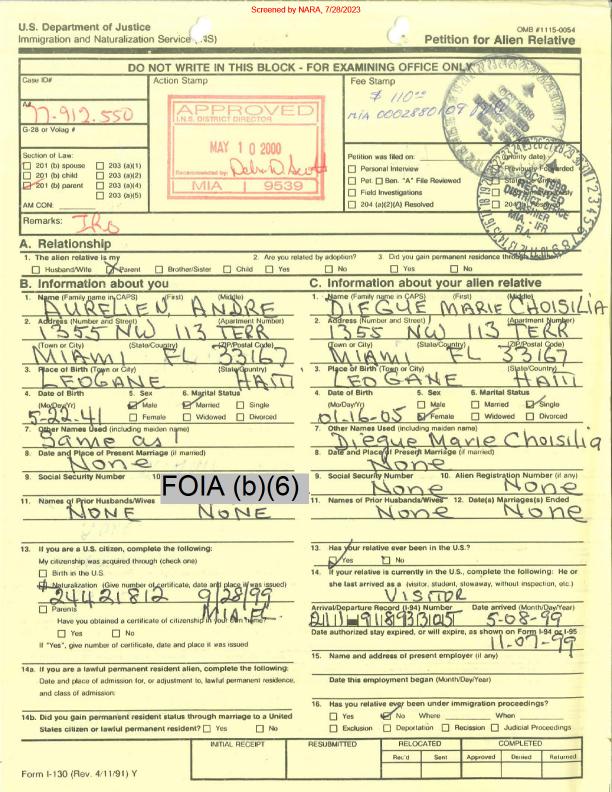 Screened by NARA, 7/28/2023
U.S. Department of Justice
Immigration and Naturalization Service (INS)
OMB #1115-0054
Petition for Alien Relative
DO NOT WRITE IN THIS BLOCK - FOR EXAMINING OFFICE ONLY
Case ID#
Action Stamp
Fee Stamp
A#
77-912.550
$ 110.00
MIA 0002880109
G-28 or Volag #
APPROVED
I.N.S. DISTRICT DIRECTOR
MAY 10 2000
Recommended by:
MIA 9539
Section of Law:
201 (b) spouse 203 (a)(1)
201 (b) child 203 (a)(2)
201 (b) parent 203 (a)(4)
203 (a)(5)
AM CON:
Petition was filed on: (priority date)
Personal Interview Previously Forwarded
Pet. Ben. "A" File Reviewed
Field Investigations
204 (a)(2)(A) Resolved
OCT 1999
RECEIVED
DISTRICT OFFICE
CASHIER
MIA - IFR
FLA.
Remarks:
A. Relationship
1. The alien relative is my
Husband/Wife Parent Brother/Sister Child
2. Are you related by adoption?
Yes No
3. Did you gain permanent residence through
Yes No
B. Information about you
1. Name (Family name in CAPS) (First) (Middle)
AURELIEN, ANDRE
2. Address (Number and Street) (Apartment Number)
1355 NW 113 TERR
(Town or City) (State/Country) (ZIP/Postal Code)
MIAMI FL 33167
3. Place of Birth (Town or City) (State/Country)
LEOGANE HAITI
4. Date of Birth 5. Sex 6. Marital Status
(Mo/Day/Yr) Male Married Single
5-22-41 Female Widowed Divorced
7. Other Names Used (including maiden name)
Same as 1
8. Date and Place of Present Marriage (if married)
None
9. Social Security Number 10.
FOIA (b)(6)
11. Names of Prior Husbands/Wives
NONE NONE
13. If you are a U.S. citizen, complete the following:
My citizenship was acquired through (check one)
Birth in the U.S.
Naturalization (Give number of certificate, date and place it was issued)
24421812 9/28/99
MIA FL
Parents
Have you obtained a certificate of citizenship in your own name?
Yes No
If "Yes", give number of certificate, date and place it was issued
14a. If you are a lawful permanent resident alien, complete the following:
Date and place of admission for, or adjustment to, lawful permanent residence,
and class of admission:
14b. Did you gain permanent resident status through marriage to a United
States citizen or lawful permanent resident? Yes No
C. Information about your alien relative
1. Name (Family name in CAPS) (First) (Middle)
DIEGUE MARIE CHOISILIA
2. Address (Number and Street) (Apartment Number)
1355 NW 113 TERR
(Town or City) (State/Country) (ZIP/Postal Code)
MIAMI FL 33167
3. Place of Birth (Town or City) (State/Country)
LEOGANE HAITI
4. Date of Birth 5. Sex 6. Marital Status
(Mo/Day/Yr) Male Married Single
01-16-05 Female Widowed Divorced
7. Other Names Used (including maiden name)
Diegue Marie Choisilia
8. Date and Place of Present Marriage (if married)
None
9. Social Security Number 10. Alien Registration Number (if any)
None None
11. Names of Prior Husbands/Wives 12. Date(s) Marriages(s) Ended
None None
13. Has your relative ever been in the U.S.?
Yes No
14. If your relative is currently in the U.S., complete the following: He or
she last arrived as a (visitor, student, stowaway, without inspection, etc.)
VISITOR
Arrival/Departure Record (I-94) Number Date arrived (Month/Day/Year)
5-08-99
Date authorized stay expired, or will expire, as shown on Form I-94 or I-95
11-07-99
15. Name and address of present employer (if any)
Date this employment began (Month/Day/Year)
16. Has your relative ever been under immigration proceedings?
Yes No Where When
Exclusion Deportation Recission Judicial Proceedings
INITIAL RECEIPT RESUBMITTED RELOCATED COMPLETED
Rec'd Sent Approved Denied Returned
Form I-130 (Rev. 4/11/91) Y